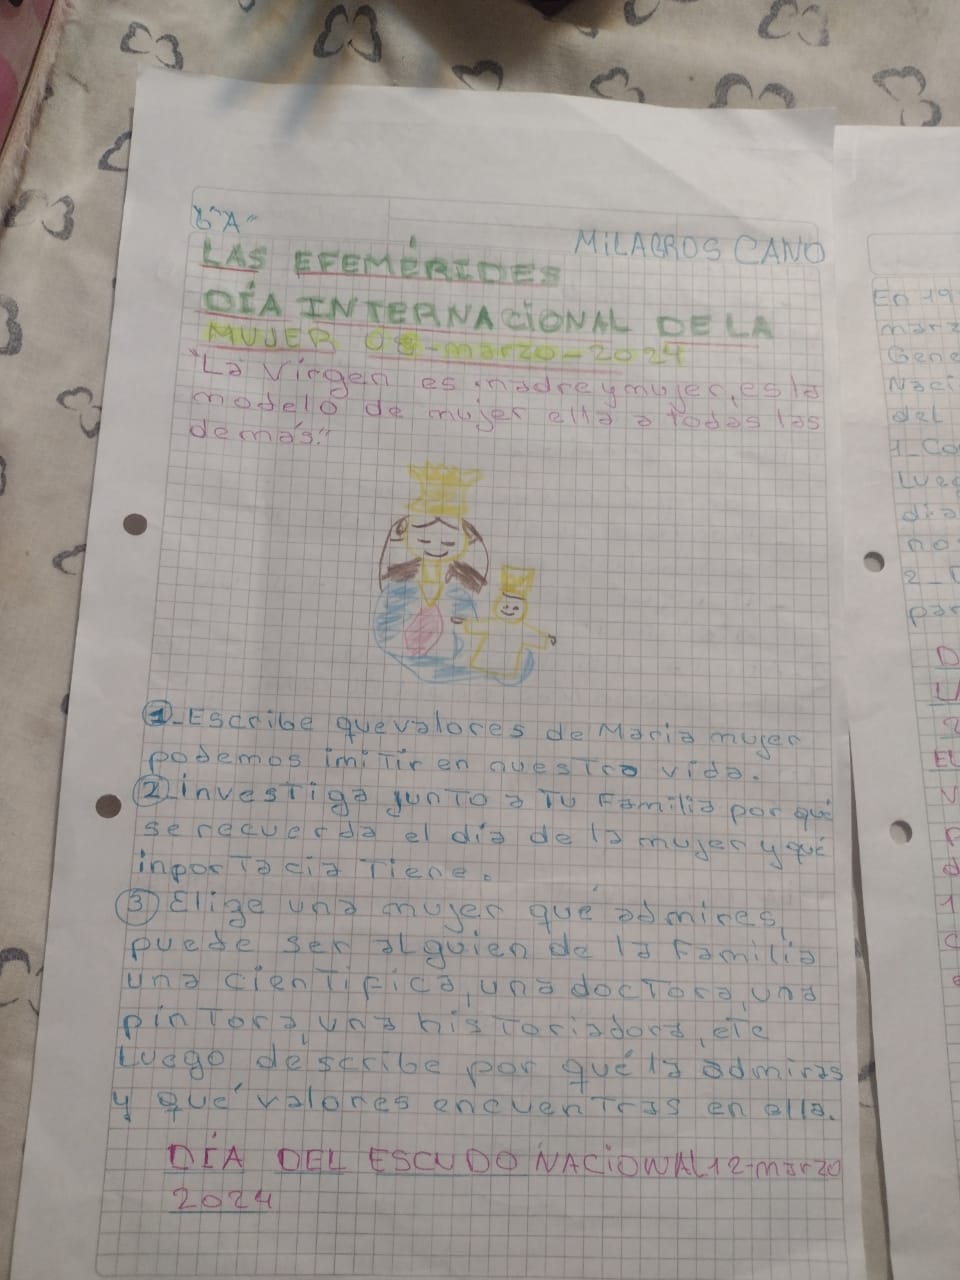 6"A"
MiLAGROS CANO
LAS EFEMÉRIDES
DÍA INTERNACiONAL DE LA
MUJER 08-marzo-2024
"La Virgen es madre y mujer, es la
modelo de mujer ella a todas las
demás."
1_Escribe que valores de Maria mujer
podemos imitir en nuestro vida.
2_investiga junto a tu Familia por qué
se recuerda el día de la mujer y qué
inportacia tiene.
3 Elige una mujer qué admires,
puede ser alguien de la Familia
una cientifica, una doctora, una
pintora, una historiadora, etc
Luego describe por qué la admiras
y qué valores encuentras en ella.
DÍA DEL ESCUDO NACiONAL 12-marzo
2024
En 19
marz
Gene
Naci
del
1_Co
Lueg
dia
no
2_
par
D
2
EL
V
P
d
1